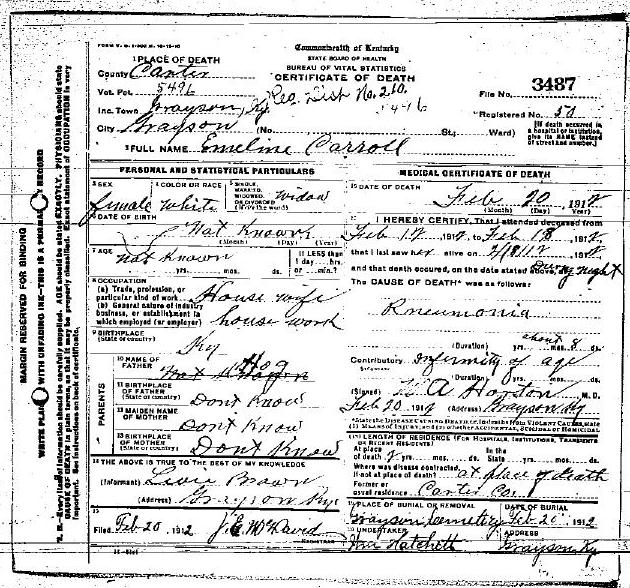 FORM V. S.
Commonwealth of Kentucky
STATE BOARD OF HEALTH
BUREAU OF VITAL STATISTICS
CERTIFICATE OF DEATH
1 PLACE OF DEATH
County Carter
Vot. Pct. 5496
Inc. Town Grayson, Ky. Reg. Dist No. 210.
5496
City Grayson (No. St.; Ward)
File No. 3487
Registered No. 50
[If death occurred in a hospital or institution, give its NAME instead of street and number.]
2 FULL NAME Emeline Carroll
PERSONAL AND STATISTICAL PARTICULARS
3 SEX female
4 COLOR OR RACE white
5 SINGLE, MARRIED, WIDOWED, OR DIVORCED (Write the word) widow
6 DATE OF BIRTH
Not Known
(Month) (Day) (Year)
7 AGE
not Known
yrs. mos. ds.
If LESS than 1 day, hrs. or min.?
8 OCCUPATION
(a) Trade, profession, or particular kind of work House wife
(b) General nature of industry, business, or establishment in which employed (or employer) house work
9 BIRTHPLACE
(State or country) Ky
PARENTS
10 NAME OF FATHER
11 BIRTHPLACE OF FATHER
(State or country) Dont Know
12 MAIDEN NAME OF MOTHER Dont Know
13 BIRTHPLACE OF MOTHER
(State or country) Dont Know
14 THE ABOVE IS TRUE TO THE BEST OF MY KNOWLEDGE
(Informant) Brown
(Address) Grayson Ky.
15
Filed Feb 20 1912 J.E. McDavid
REGISTRAR
MEDICAL CERTIFICATE OF DEATH
16 DATE OF DEATH
Feb 20 1912
(Month) (Day) (Year)
17 I HEREBY CERTIFY, That I attended deceased from
Feb 12 1912 to Feb 18 1912
that I last saw her alive on 1912
and that death occured, on the date stated above, at night
The CAUSE OF DEATH* was as follows:
Pneumonia
about 8
(Duration) yrs. mos. ds.
Contributory infirmity of age
(Duration) yrs. mos. ds.
(Signed) A Horton M.D.
Feb 20 1912 (Address) Grayson Ky
*State the DISEASE CAUSING DEATH, or, in deaths from VIOLENT CAUSES, state (1) MEANS OF INJURY; and (2) whether ACCIDENTAL, SUICIDAL or HOMICIDAL
18 LENGTH OF RESIDENCE (FOR HOSPITALS, INSTITUTIONS, TRANSIENTS OR RECENT RESIDENTS)
At place of death yrs. mos. ds. In the State yrs. mos. ds.
Where was disease contracted, if not at place of death? at place of death
Former or usual residence Carter Co.
19 PLACE OF BURIAL OR REMOVAL
Grayson Cemetery
DATE OF BURIAL
Feb 20 1912
20 UNDERTAKER
Hatchett
ADDRESS
Grayson Ky.
MARGIN RESERVED FOR BINDING
WRITE PLAINLY WITH UNFADING INK—THIS IS A PERMANENT RECORD
N. B.—Every item of information should be carefully supplied. AGE should be stated EXACTLY. PHYSICIANS should state CAUSE OF DEATH in plain terms, so that it may be properly classified. Exact statement of OCCUPATION is very important. See instructions on back of certificate.